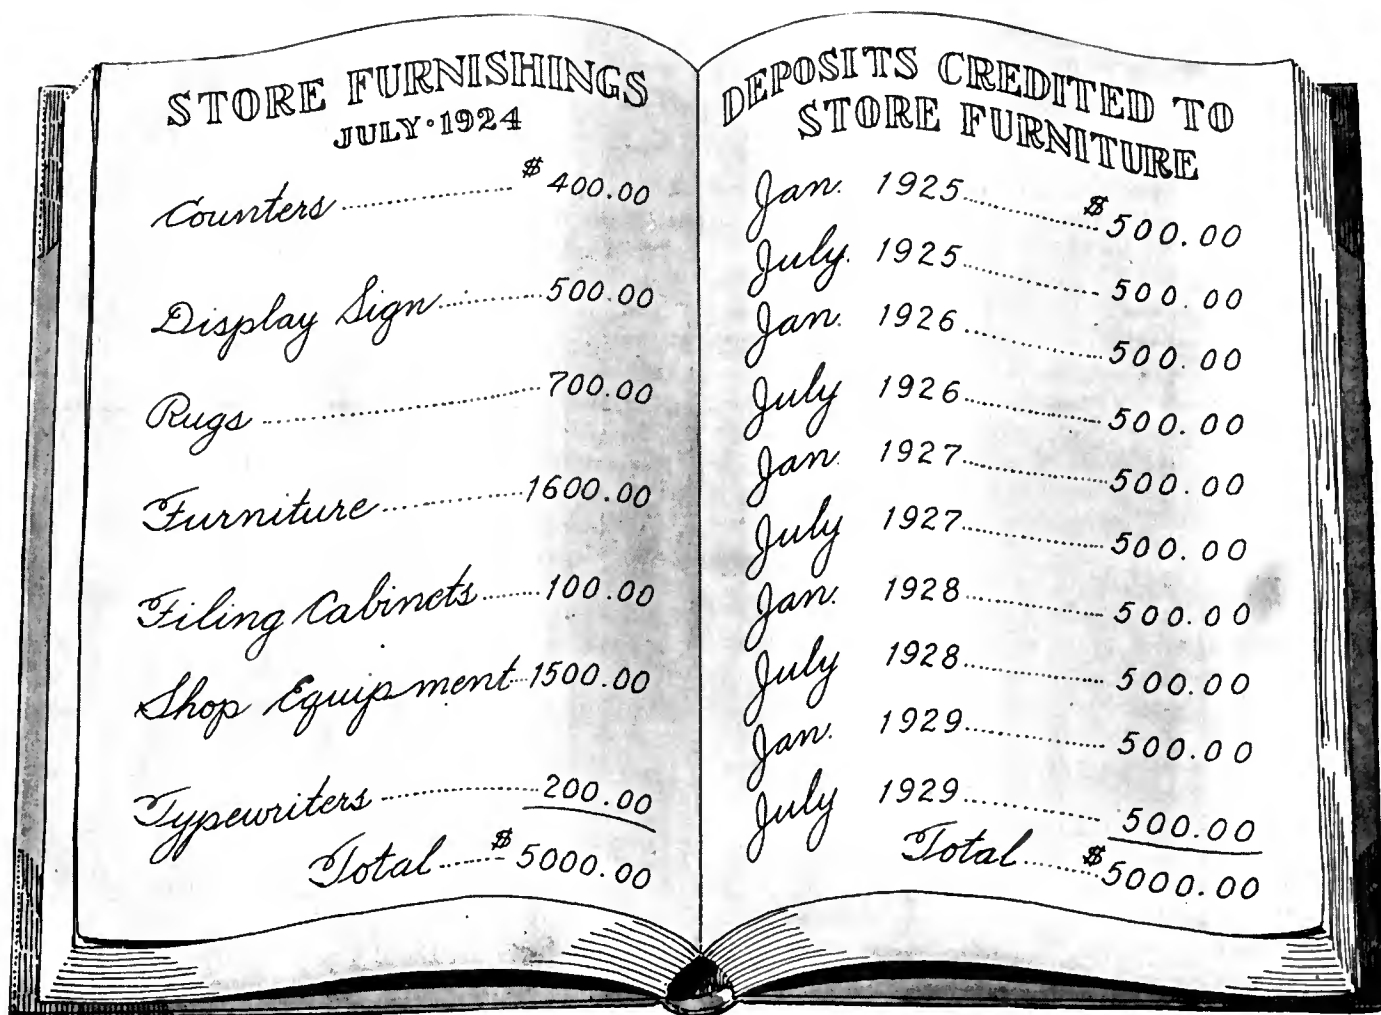 STORE FURNISHINGS
JULY·1924
Counters $400.00
Display Sign 500.00
Rugs 700.00
Furniture 1600.00
Filing Cabinets 100.00
Shop Equipment 1500.00
Typewriters 200.00
Total $5000.00
DEPOSITS CREDITED TO
STORE FURNITURE
Jan. 1925 $500.00
July. 1925 500.00
Jan. 1926 500.00
July 1926 500.00
Jan. 1927 500.00
July 1927 500.00
Jan. 1928 500.00
July 1928 500.00
Jan. 1929 500.00
July 1929 500.00
Total $5000.00